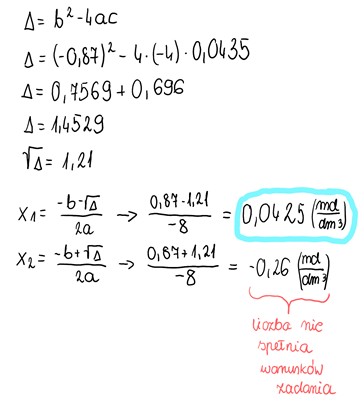 Δ = b² - 4ac
Δ = (-0,87)² - 4 · (-4) · 0,0435
Δ = 0,7569 + 0,696
Δ = 1,4529
√Δ = 1,21
x₁ = (-b-√Δ)/(2a) → (0,87-1,21)/(-8) = 0,0425 (mol/dm³)
x₂ = (-b+√Δ)/(2a) → (0,87+1,21)/(-8) = -0,26 (mol/dm³)
liczba nie
spełnia
warunków
zadania